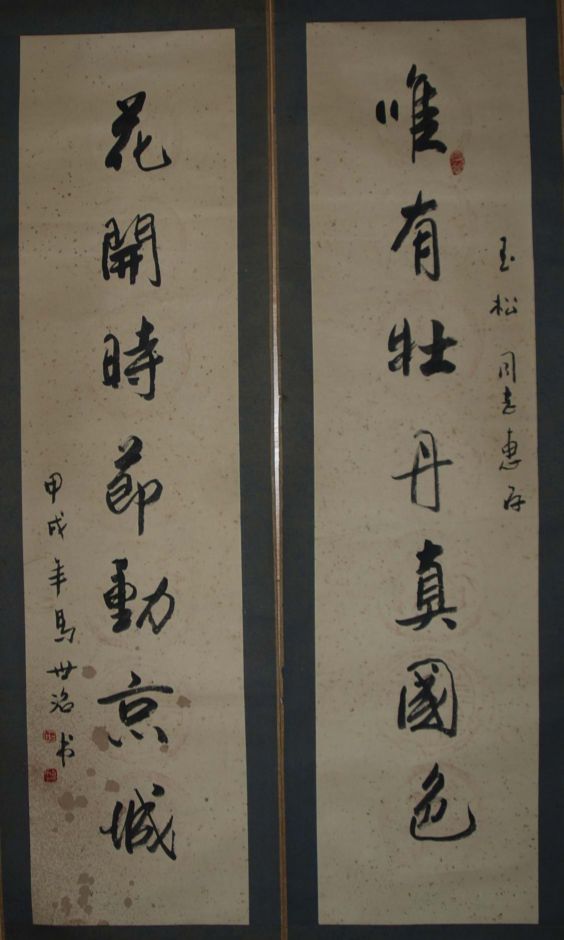 唯有牡丹真國色
玉松同志惠存
花開時節動京城
甲戌年馬世治书